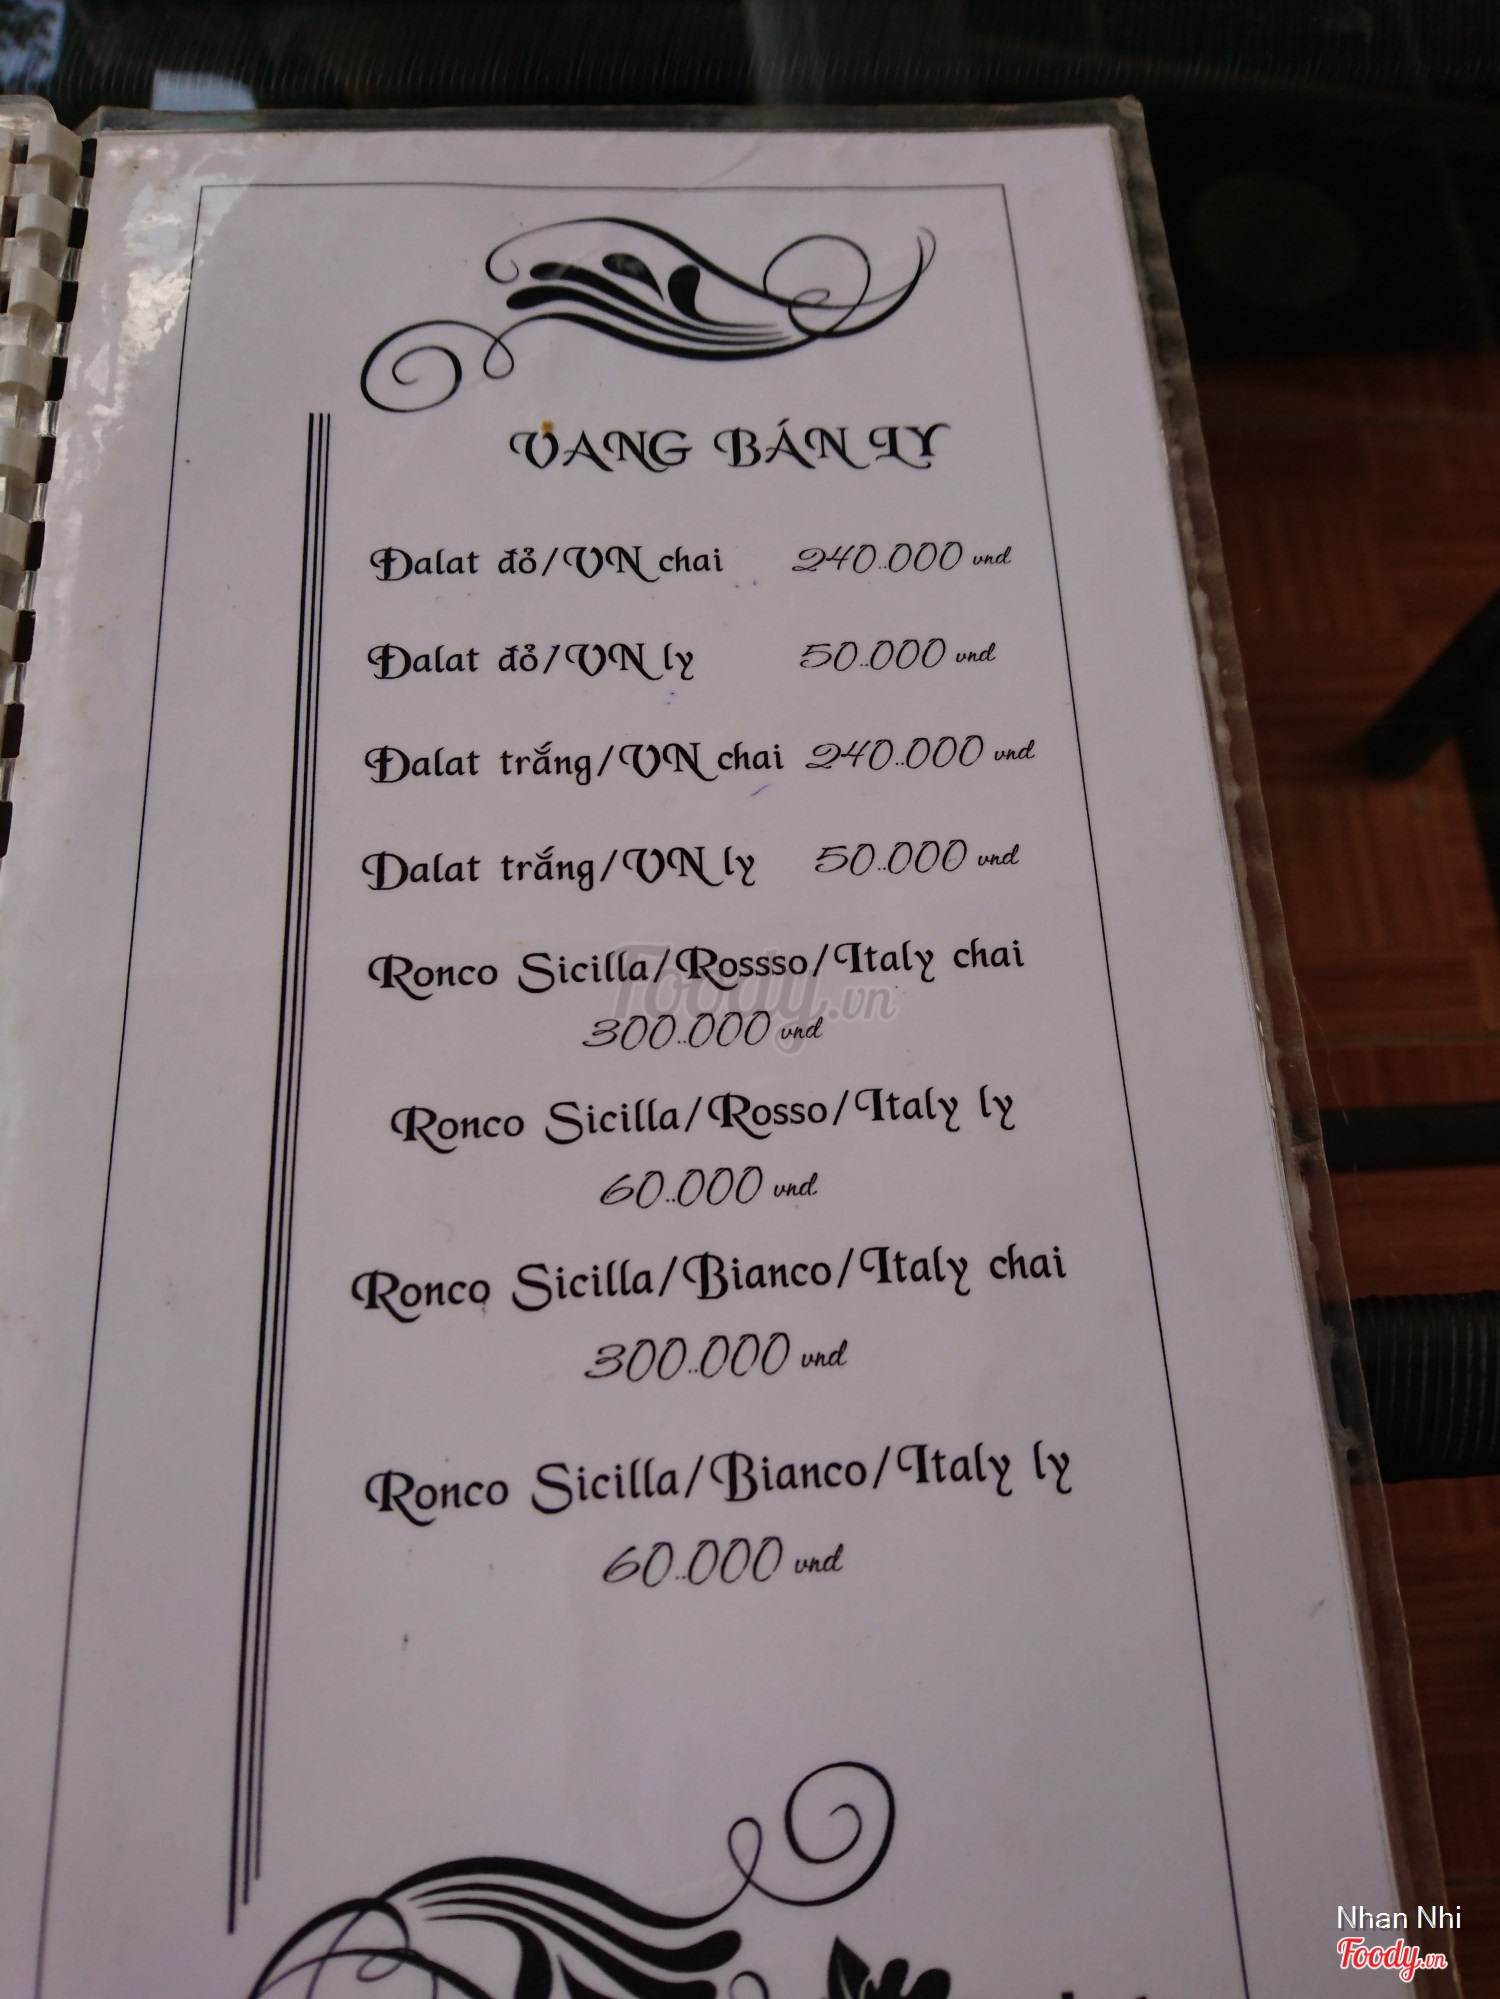 VANG BÁN LY
Dalat đỏ/VN chai 240..000 vnd
Dalat đỏ/VN ly 50..000 vnd
Dalat trắng/VN chai 240..000 vnd
Dalat trắng/VN ly 50..000 vnd
Ronco Sicilla/Rossso/Italy chai
300..000 vnd
Ronco Sicilla/Rosso/Italy ly
60..000 vnd
Ronco Sicilla/Bianco/Italy chai
300..000 vnd
Ronco Sicilla/Bianco/Italy ly
60..000 vnd
Foody.vn
Nhan Nhi
Foody.vn